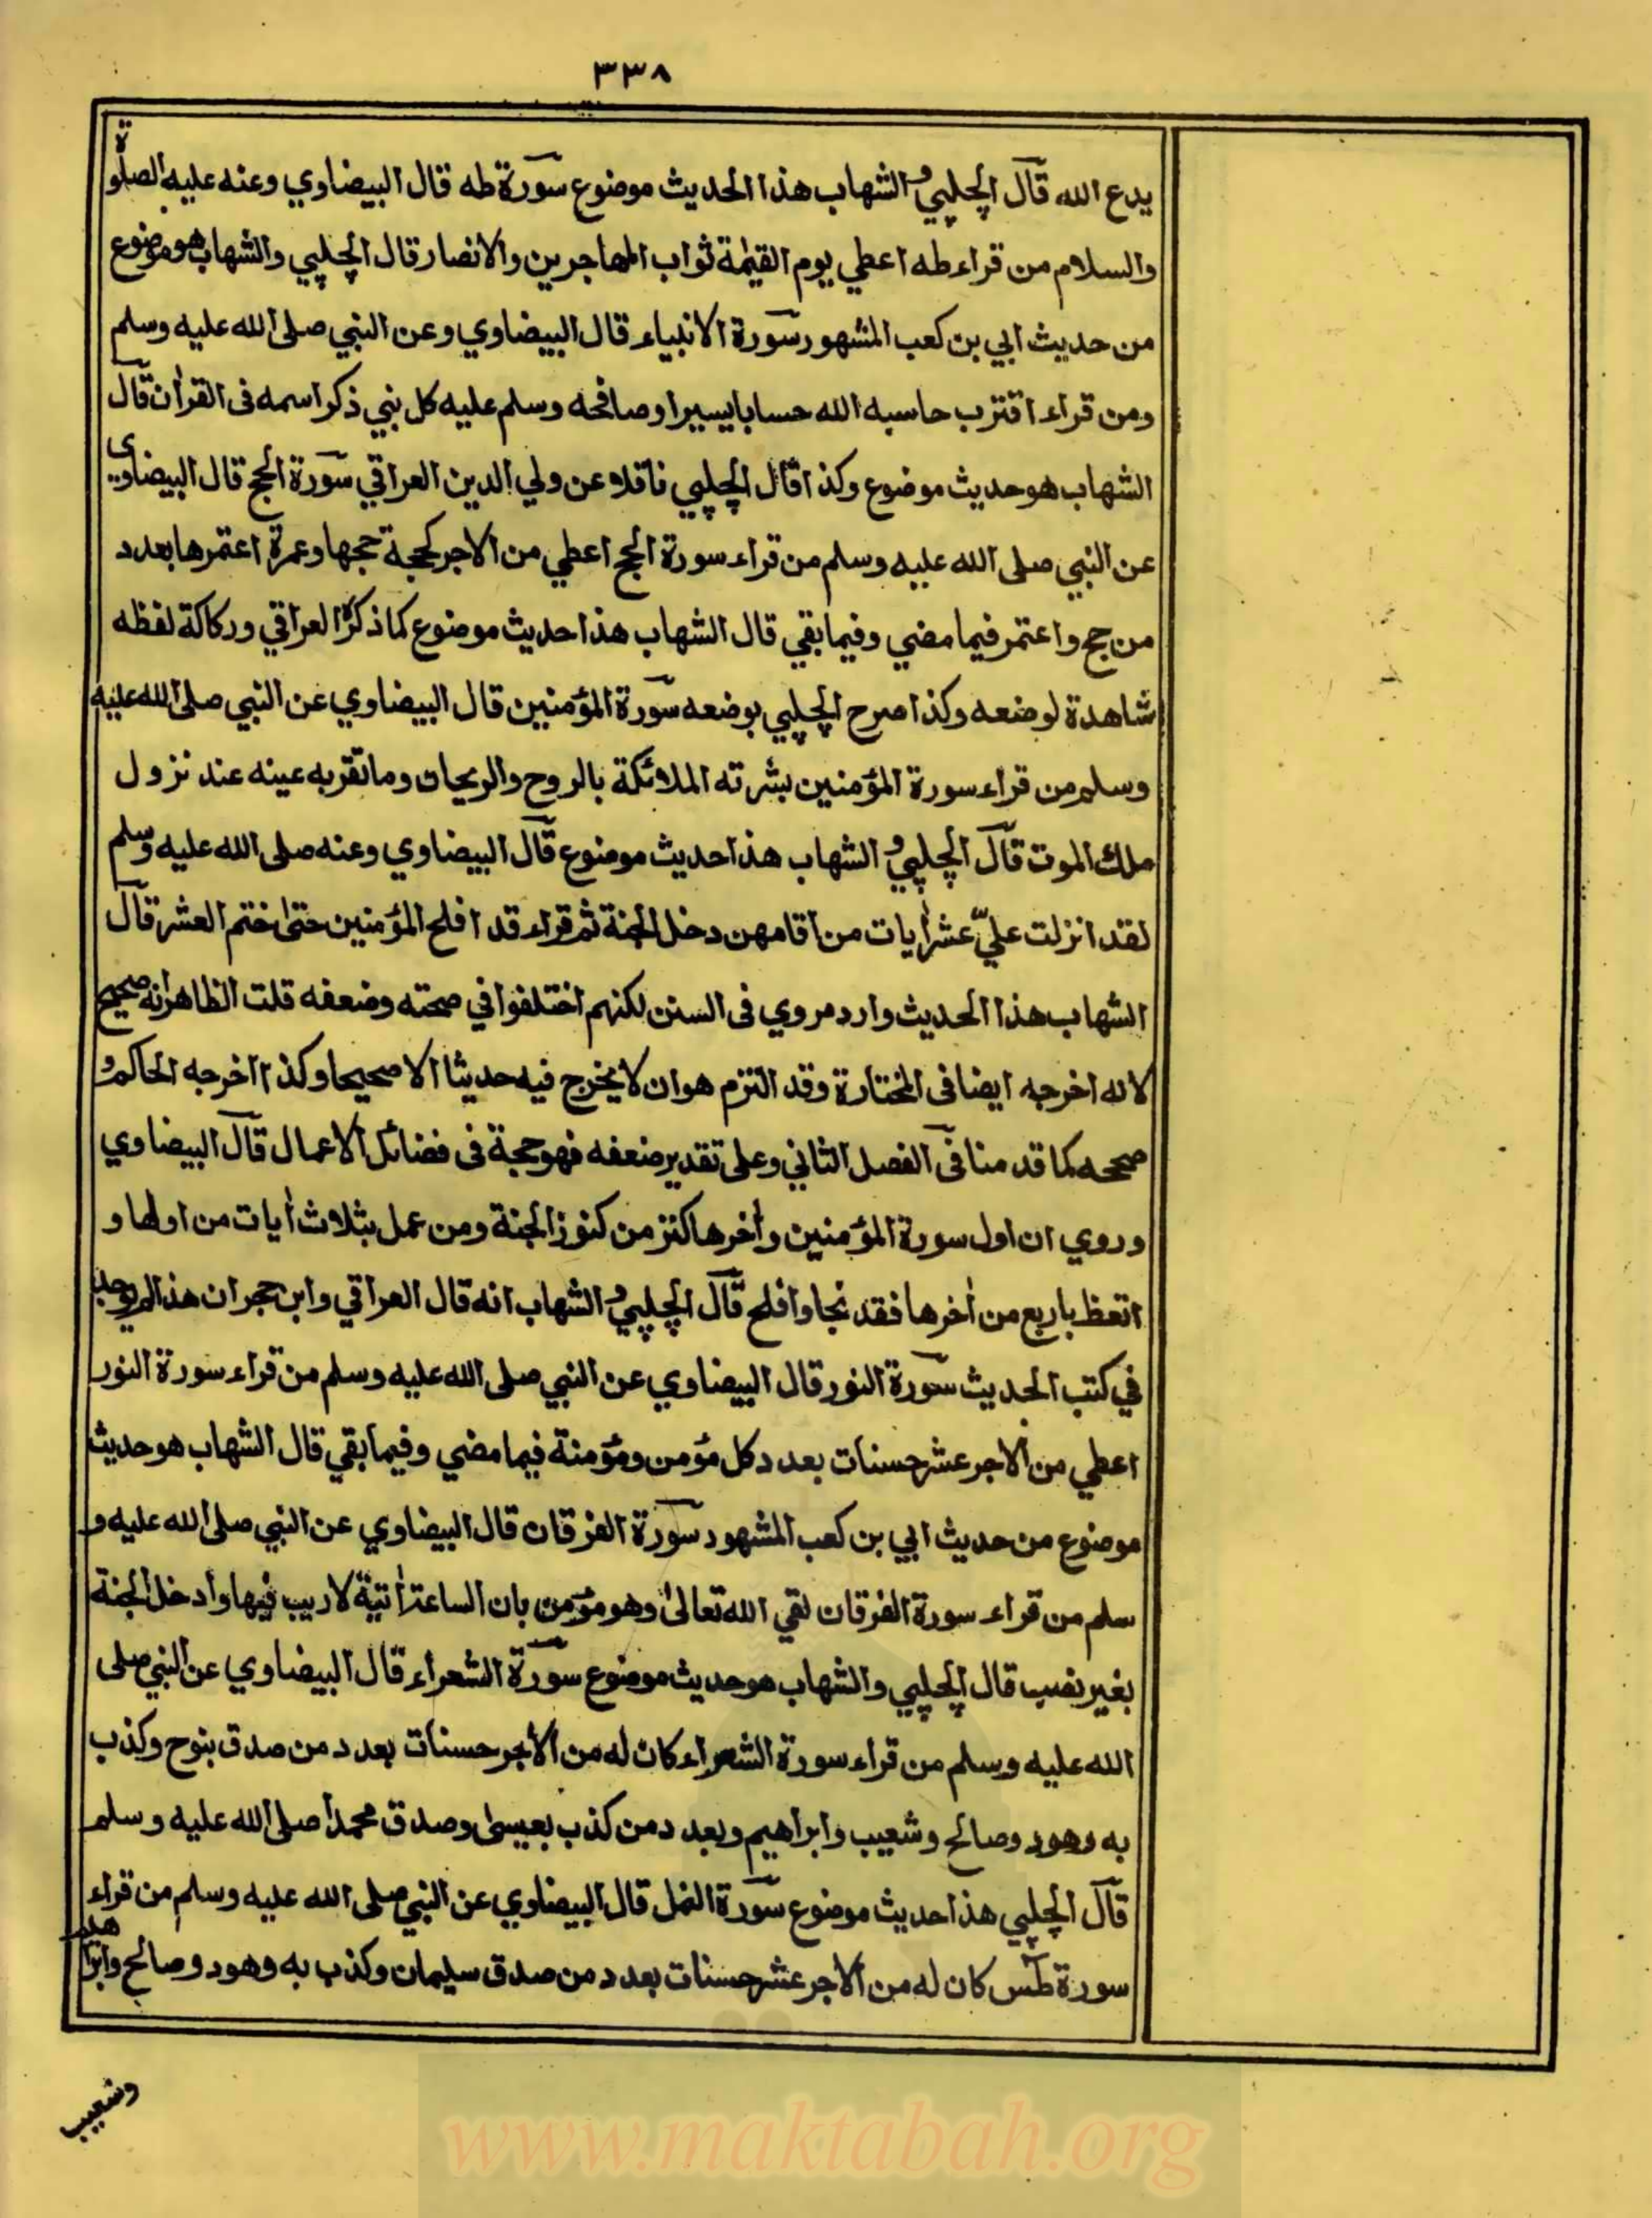 ٣٣٨
يدع الله قال الچلپي والشهاب هذا الحديث موضوع سورة طه قال البيضاوي وعنه عليه الصلوة
والسلام من قراء طه اعطي يوم القيٰمة ثواب المهاجرين والانصار قال الچلپي والشهاب هو موضوع
من حديث ابي بن كعب المشهور سورة الانبياء قال البيضاوي وعن النبي صلى الله عليه وسلم
ومن قراء اقترب حاسبه الله حسابا يسيرا وصافحه وسلم عليه كل نبي ذكر اسمه فى القرأن قال
الشهاب هو حديث موضوع وكذا قال الچلپي ناقلا عن ولي الدين العراقي سورة الحج قال البيضاوي
عن النبي صلى الله عليه وسلم من قراء سورة الحج اعطي من الاجر كحجة حجها وعمرة اعتمرها بعدد
من حج واعتمر فيما مضي وفيما بقي قال الشهاب هذا حديث موضوع كما ذكره العراقي وركاكة لفظه
شاهدة لوضعه وكذا صرح الچلپي بوضعه سورة المؤمنين قال البيضاوي عن النبي صلى الله عليه
وسلم من قراء سورة المؤمنين بشرته الملائكة بالروح والريحان وما تقربه عينه عند نزول
ملك الموت قال الچلپي و الشهاب هذا حديث موضوع قال البيضاوي وعنه صلى الله عليه وسلم
لقد انزلت عليّ عشر أيات من اقامهن دخل الجنة ثم قراء قد افلح المؤمنين حتى ختم العشر قال
الشهاب هذا الحديث وارد مروي فى السنن لكنهم اختلفوا في صحته وضعفه قلت الظاهر انه صحيح
لانه اخرجه ايضا فى المختارة وقد التزم هو ان لا يخرج فيه حديثا الا صحيحا وكذا اخرجه الحاكم و
صححه كما قدمنا فى الفصل الثاني وعلى تقدير ضعفه فهو حجة فى فضائل الاعمال قال البيضاوي
وروي ان اول سورة المؤمنين وأخرها كنز من كنوز الجنة ومن عمل بثلاث أيات من اولها و
اتعظ باربع من أخرها فقد نجا وافلح قال الچلپي و الشهاب انه قال العراقي وابن حجر ان هذا لم يوجد
في كتب الحديث سورة النور قال البيضاوي عن النبي صلى الله عليه وسلم من قراء سورة النور
اعطي من الاجر عشر حسنات بعدد كل مؤمن ومؤمنة فيما مضي وفيما بقي قال الشهاب هو حديث
موضوع من حديث ابي بن كعب المشهور سورة الفرقان قال البيضاوي عن النبي صلى الله عليه و
سلم من قراء سورة الفرقان لقي الله تعالى وهو مؤمن بان الساعة أتية لا ريب فيها وأدخل الجنة
بغير نصب قال الچلپي والشهاب هو حديث موضوع سورة الشعراء قال البيضاوي عن النبي صلى
الله عليه وسلم من قراء سورة الشعراء كان له من الأجر حسنات بعدد من صدق بنوح وكذب
به وهود وصالح وشعيب وابراهيم وبعدد من كذب بعيسى وصدق محمدا صلى الله عليه وسلم
قال الچلپي هذا حديث موضوع سورة النمل قال البيضاوي عن النبي صلى الله عليه وسلم من قراء
سورة طس كان له من الاجر عشر حسنات بعدد من صدق سليمان وكذب به وهود وصالح وابراهيم
وشعيب
www.maktabah.org